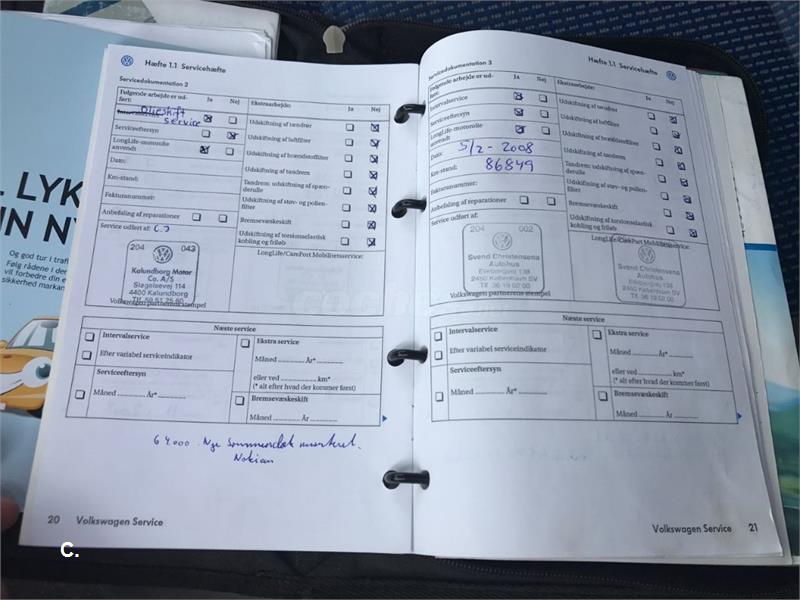 LYK
N NY
God og tur i traf
Følg rådene i der
vil forbedre din e
sikkerhed markan
Hæfte 1.1 Servicehæfte
Servicedokumentation 2
Følgende arbejde er ud-
ført: Ja Nej
Olieskift
service
Serviceeftersyn
LongLife-motorolie
anvendt
Dato:
Km-stand:
Fakturanummer:
Anbefaling af reparationer
Service udført af:
204 043
Kalundborg Motor
Co. A/S
Slagelsevej 114
4400 Kalundborg
Tlf. 59 51 25 60
Volkswagen partnerens stempel
Ekstraarbejde: Ja Nej
Udskiftning af tændrør
Udskiftning af luftfilter
Udskiftning af brændstoffilter
Udskiftning af tandrem
Tandrem: udskiftning af spæn-
derulle
Udskiftning af støv- og pollen-
filter
Bremsevæskeskift
Udskiftning af torsionselastisk
kobling og friløb
LongLife/CarePort Mobilitetsservice:
Næste service
Intervalservice
Efter variabel serviceindikator
Serviceeftersyn
Måned ............ År* ............
Ekstra service
Måned ............ År* ............
eller ved ............ km*
(* alt efter hvad der kommer først)
Bremsevæskeskift
Måned ............ År ............
64.000 . Nye sommerdæk monteret.
Nokian
20 Volkswagen Service
C.
Hæfte 1.1 Servicehæfte
Servicedokumentation 3
Følgende arbejde er ud-
ført: Ja Nej
Intervalservice
Serviceeftersyn
LongLife-motorolie
anvendt
Dato: 5/2 - 2008
Km-stand: 86849
Fakturanummer:
Anbefaling af reparationer
Service udført af:
204 002
Svend Christensens
Autohus
Ellebjergvej 138
2450 København SV
Tlf. 36 19 02 00
Volkswagen partnerens stempel
Ekstraarbejde: Ja Nej
Udskiftning af tændrør
Udskiftning af luftfilter
Udskiftning af brændstoffilter
Udskiftning af tandrem
Tandrem: udskiftning af spæn-
derulle
Udskiftning af støv- og pollen-
filter
Bremsevæskeskift
Udskiftning af torsionselastisk
kobling og friløb
LongLife/CarePort Mobilitetsservice:
Svend Christensens
Autohus
Ellebjergvej 138
2450 København SV
Tlf. 36 19 02 00
Næste service
Intervalservice
Efter variabel serviceindikator
Serviceeftersyn
Måned ............ År* ............
Ekstra service
Måned ............ År* ............
eller ved ............ km*
(* alt efter hvad der kommer først)
Bremsevæskeskift
Måned ............ År ............
Volkswagen Service 21